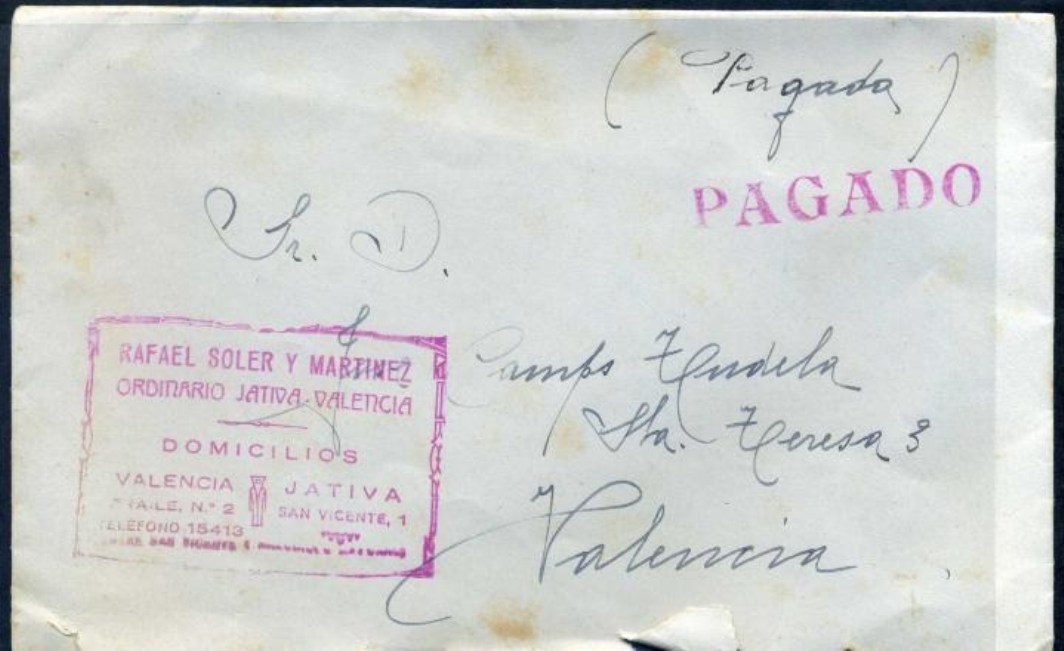 (Pagada)
PAGADO
Sr. D.
Camps Tudela
Sta. Teresa 3
Valencia
RAFAEL SOLER Y MARTINEZ
ORDINARIO JATIVA-VALENCIA
DOMICILIOS
VALENCIA JATIVA
N.º 2 SAN VICENTE, 1
TELEFONO 15413
SAN VICENTE